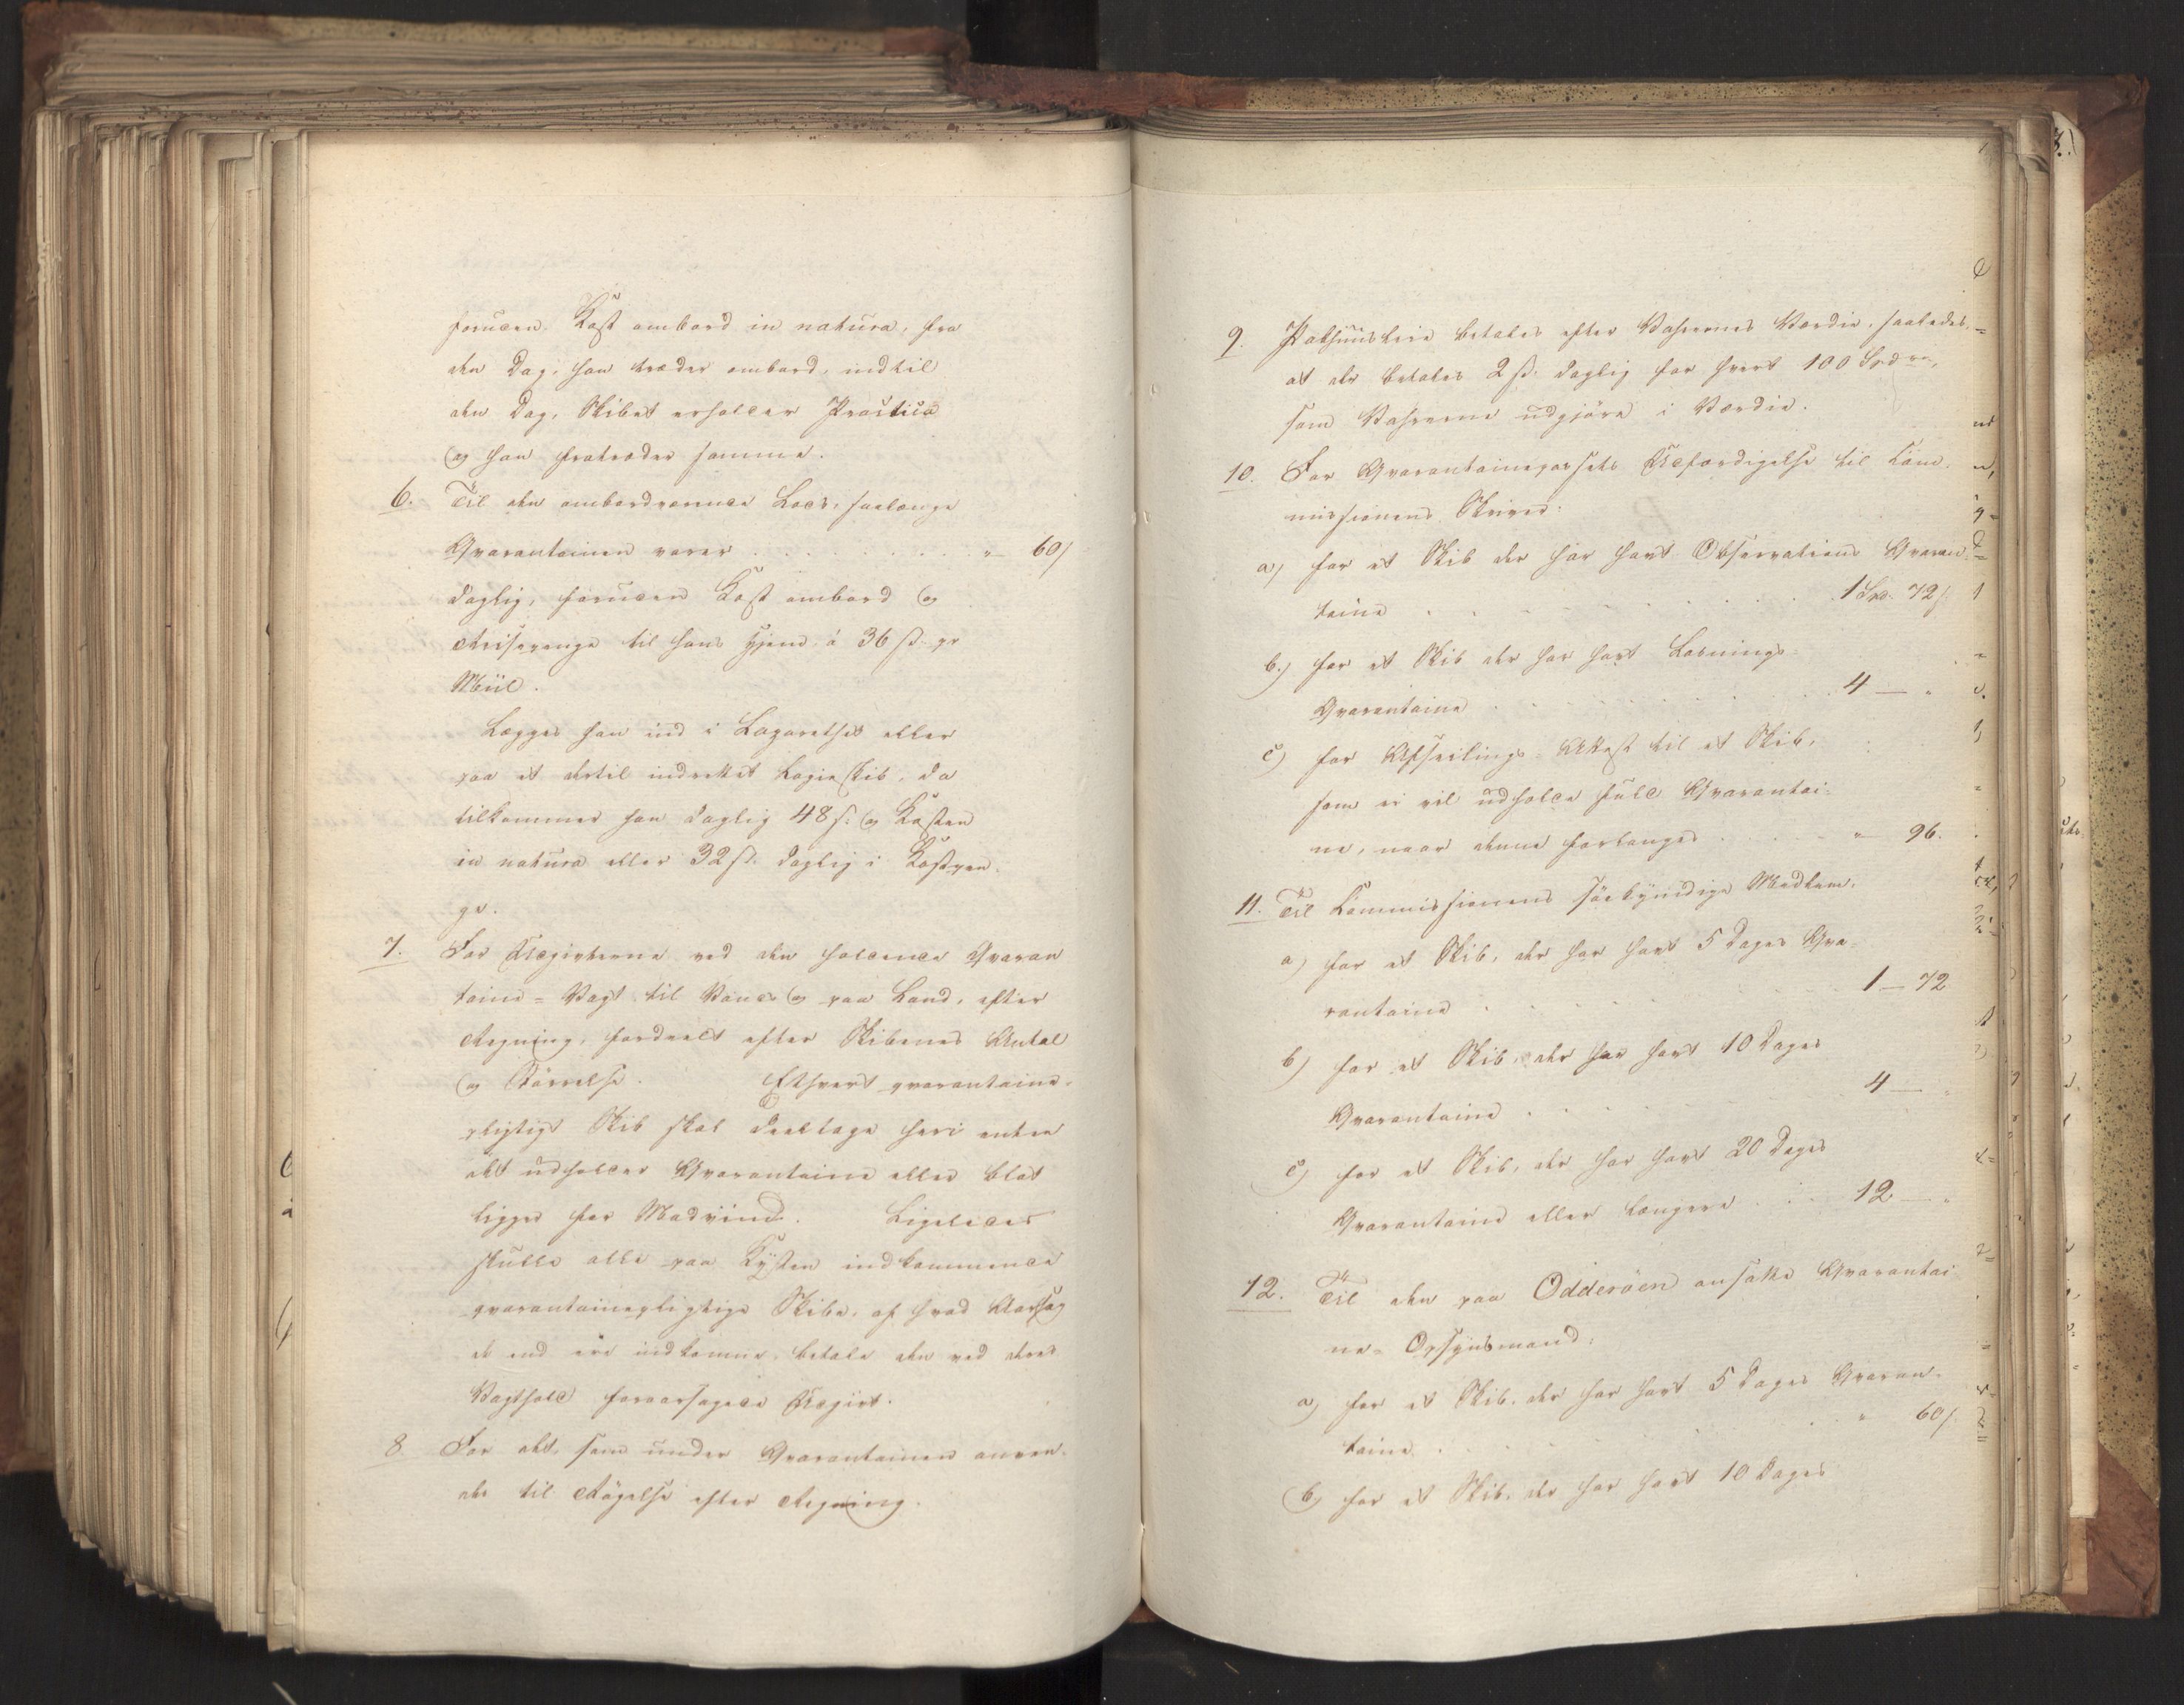 foruden Kost ombord in natura, fra
den Dag, han træder ombord, indtil
den Dag, Skibet erholder Practica
og han fratræder samme.
6. Til den ombordværende Lods, saalænge
Qvarantainen varer . . . . . . . . . " 60 s
daglig, foruden Kost ombord og
Reisepenge til hans Hjem, à 36 s. pr
Miil.
Lægges han ind i Lazarethet eller
paa et dertil indrettet Logieskib, da
tilkommer han daglig 48 s. og Kosten
in natura eller 32 s. daglig i Kostpen-
ge.
7. For Udgivterne ved den holdende Qvaran
taine=Vagt til Vands og paa Land, efter
Regning, fordeelt efter Skibenes Antal
og Störrelse. Ethvert qvarantaine-
pligtigt Skib skal deeltage heri enten
det udholder Qvarantaine eller blot
ligger for Modvind. Ligeledes
skulle alle paa Kysten indkommende
qvarantainepligtige Skibe, af hvad Aarsag
de end ere indkomne, betale den ved deres
Vagthold foraarsagede Udgivt.
8 For det, som under Qvarantainen anven-
des til Rögelse efter Regning.
9. Pakhuusleie betales efter Vahrernes Værdie, saaledes-
at der betales 2 s. daglig for hvert 100 Spdr,
som Vahrerne udgjöre i Værdie.
10. For Qvarantainepassets Udfærdigelse til Com-
missionens Skriver:
a) for et Skib der har havt Observations Qvaran-
taine . . . . . . . . . . 1 Spd. 72 s
b.) for et Skib der har havt Losnings-
Qvarantaine . . . . . . . . . 4 — "
c) for Afseilings-Attest til et Skib,
som ei vil udholde fuld Qvarantai-
ne, naar denne forlanges . . . . . " 96.
11. Til Commissionens söekyndige Medlem.
a) for et Skib, der har havt 5 Dages Qva-
rantaine . . . . . . . . . 1 — 72
b) for et Skib, der har havt 10 Dages
Qvarantaine . . . . . . . . . 4 — "
c) for et Skib, der har havt 20 Dages
Qvarantaine eller længere . . . 12 — "
12. Til den paa Odderöen ansatte Qvarantai
ne-Opsynsmand:
a) for et Skib, der har havt 5 Dages Qvaran-
taine . . . . . . . . . " 60 s
b) for et Skib, der har havt 10 Dages